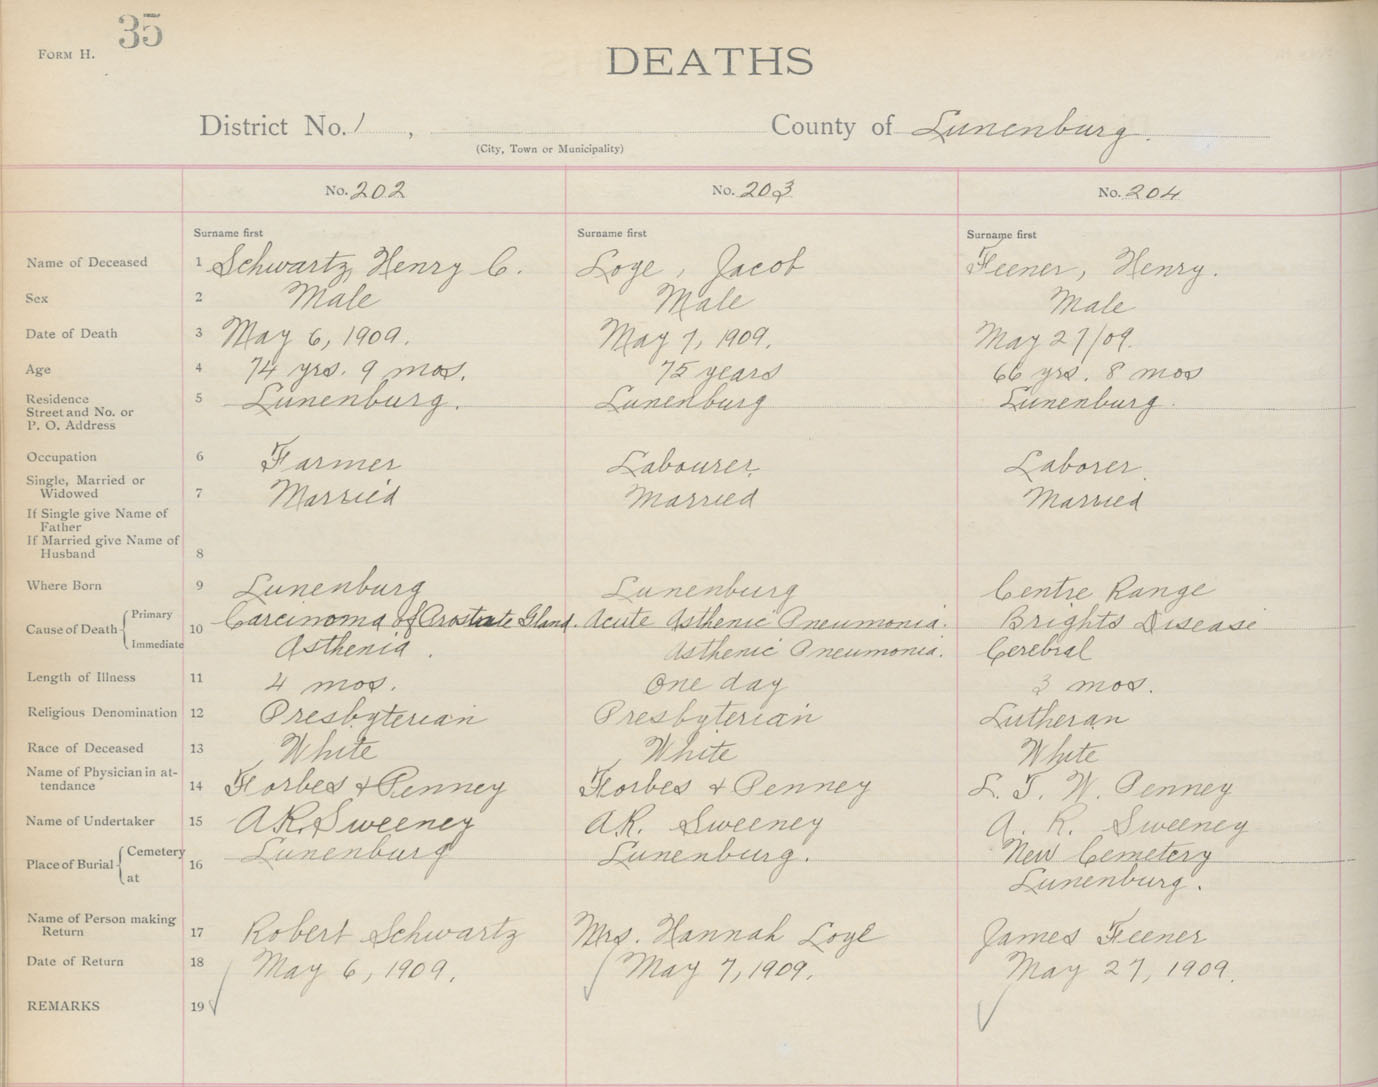 35
FORM H.
DEATHS
District No. 1 , County of Lunenburg.
(City, Town or Municipality)
No. 202 No. 203 No. 204
Surname first Surname first Surname first
Name of Deceased 1 Schwartz, Henry C. Loye, Jacob Feener, Henry.
Sex 2 Male Male Male
Date of Death 3 May 6, 1909. May 7, 1909. May 27/09.
Age 4 74 yrs. 9 mos. 75 years 66 yrs. 8 mos
Residence 5 Lunenburg. Lunenburg Lunenburg
Street and No. or
P. O. Address
Occupation 6 Farmer Labourer. Laborer.
Single, Married or
Widowed 7 Married Married Married
If Single give Name of
Father
If Married give Name of
Husband 8
Where Born 9 Lunenburg Lunenburg Centre Range
Cause of Death 10 Primary Carcinoma of Prostrate Gland. Acute Asthenic Pneumonia. Brights Disease
Immediate Asthenia. Asthenic Pneumonia. Cerebral
Length of Illness 11 4 mos. One day 3 mos.
Religious Denomination 12 Presbyterian Presbyterian Lutheran
Race of Deceased 13 White White White
Name of Physician in at-
tendance 14 Forbes & Penney Forbes & Penney L. T. W. Penney
Name of Undertaker 15 A.R. Sweeney A.R. Sweeney A. R. Sweeney
Place of Burial 16 Cemetery Lunenburg Lunenburg. New Cemetery
at Lunenburg.
Name of Person making
Return 17 Robert Schwartz Mrs. Hannah Loye James Feener
Date of Return 18 May 6, 1909. May 7, 1909. May 27, 1909.
REMARKS 19